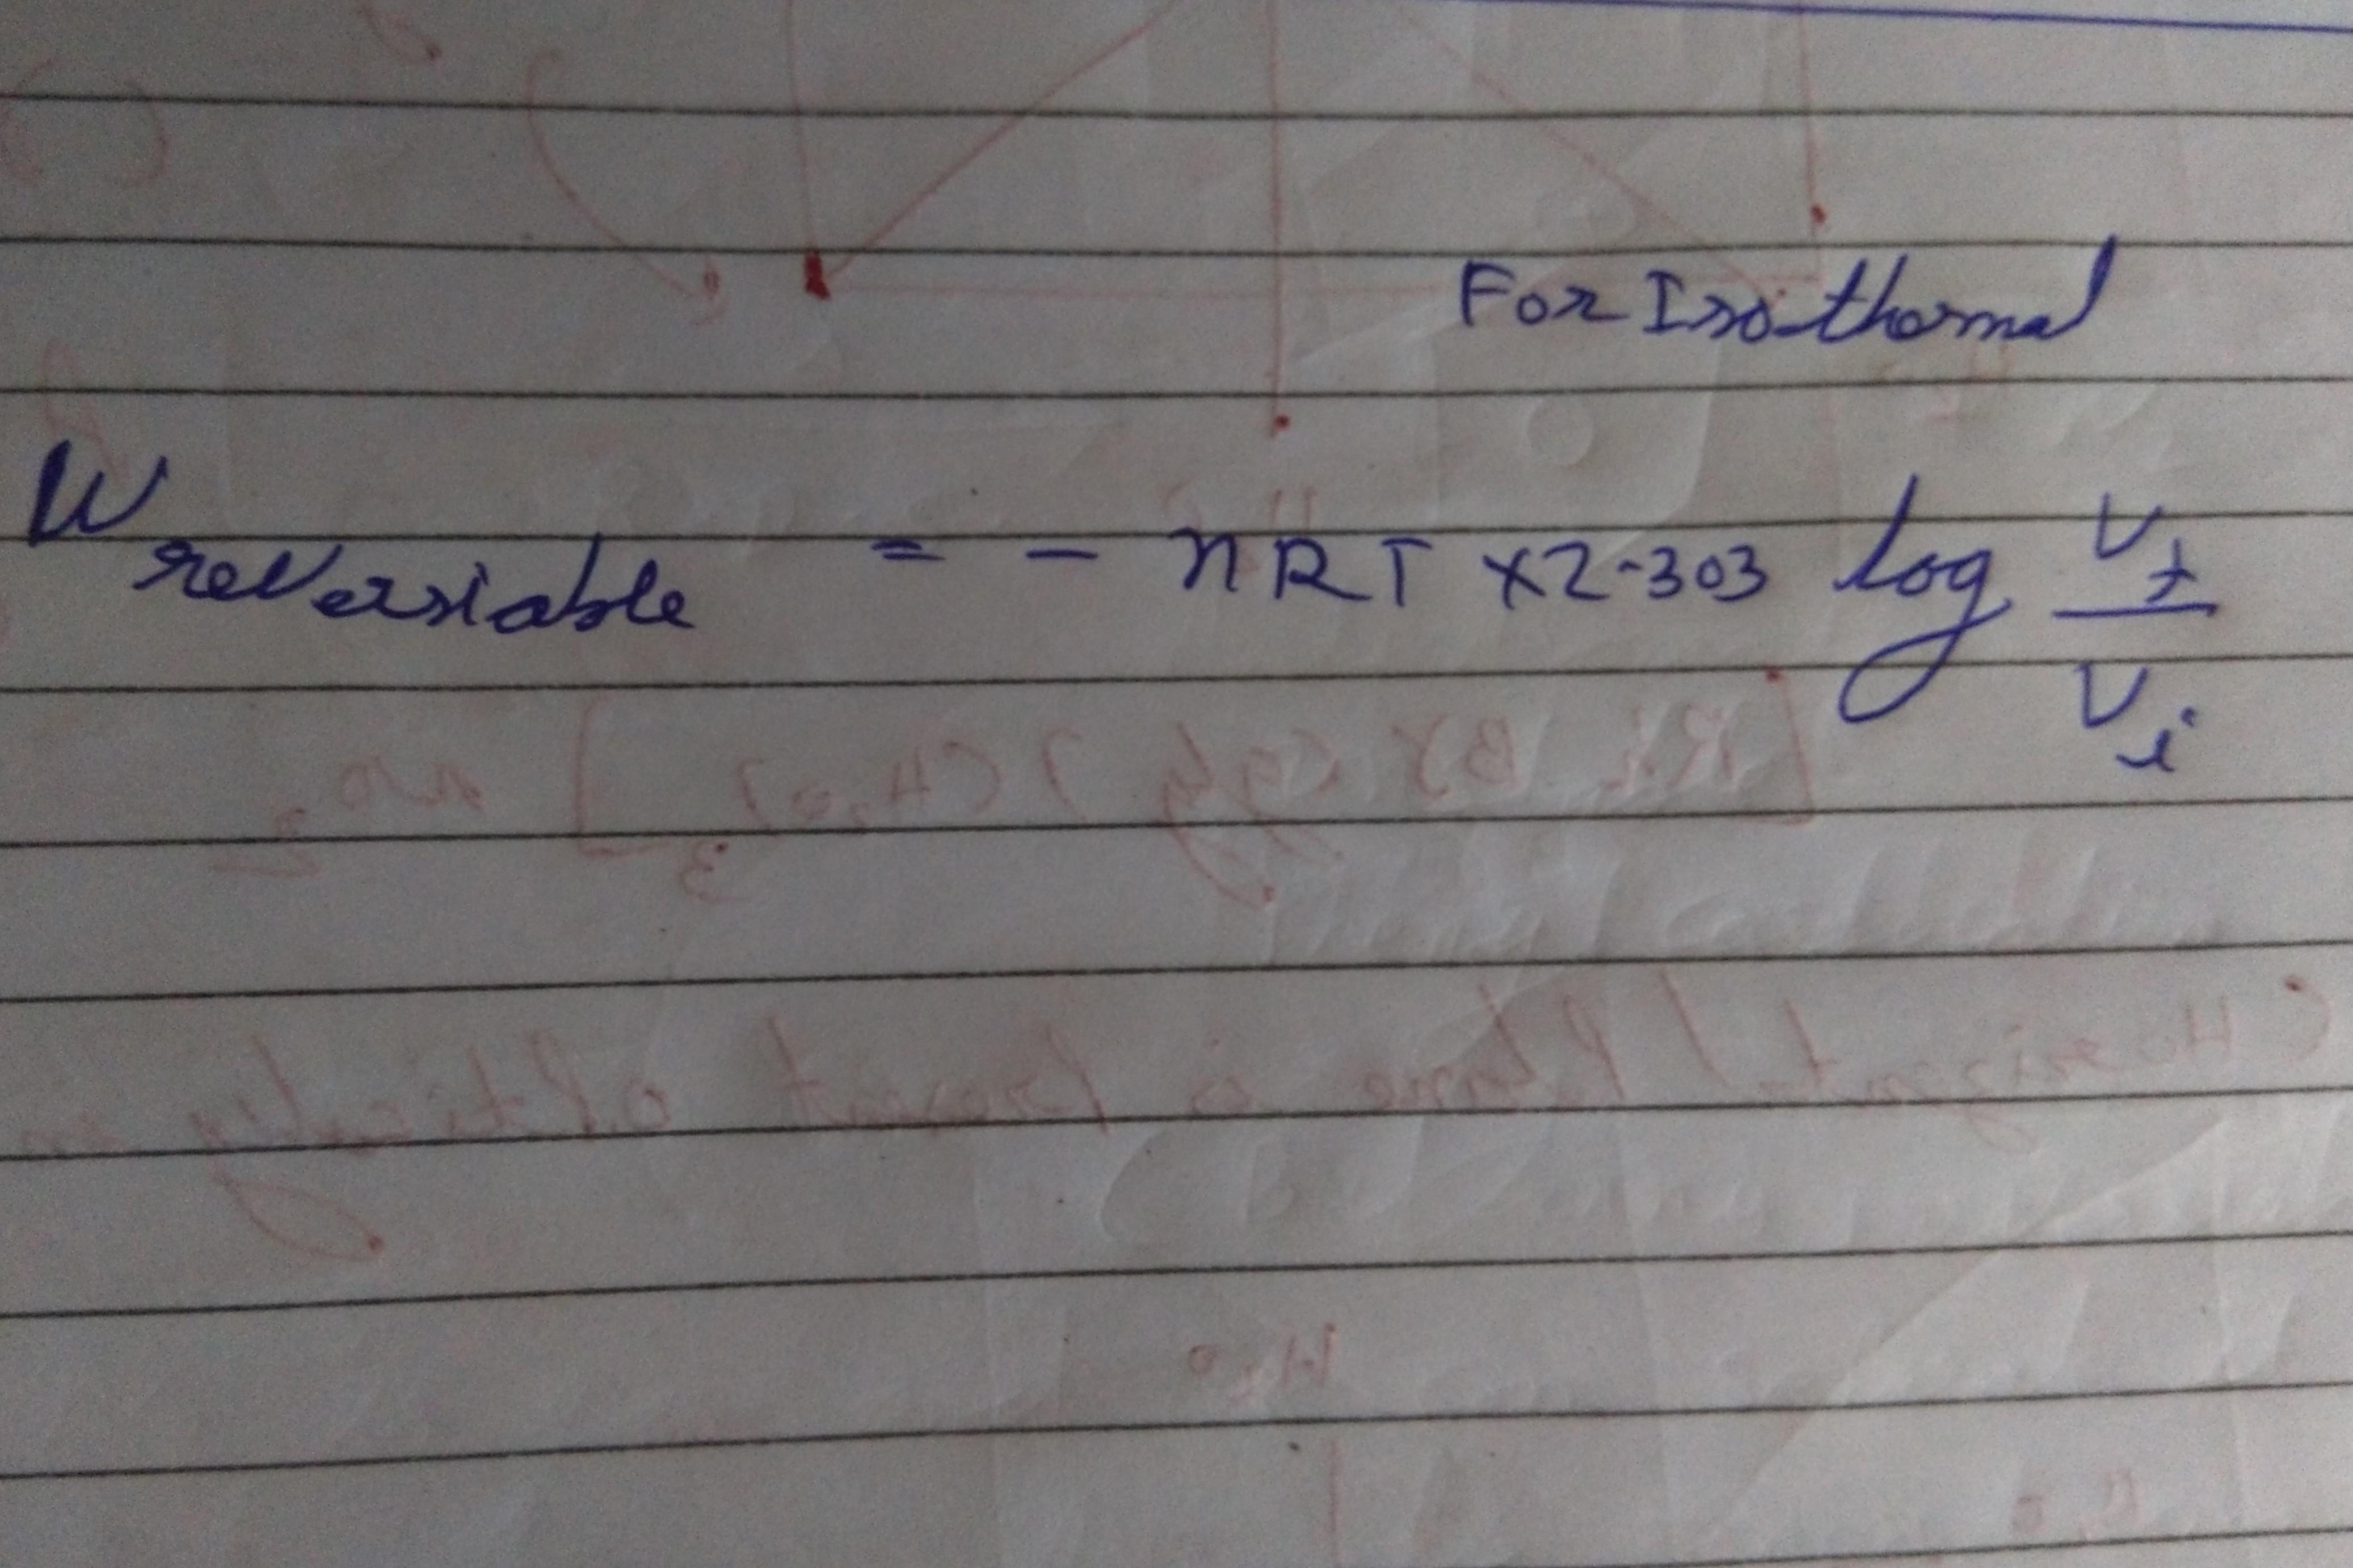 For Isothermal
W reversiable = - nRT x2.303 log Vf / Vi